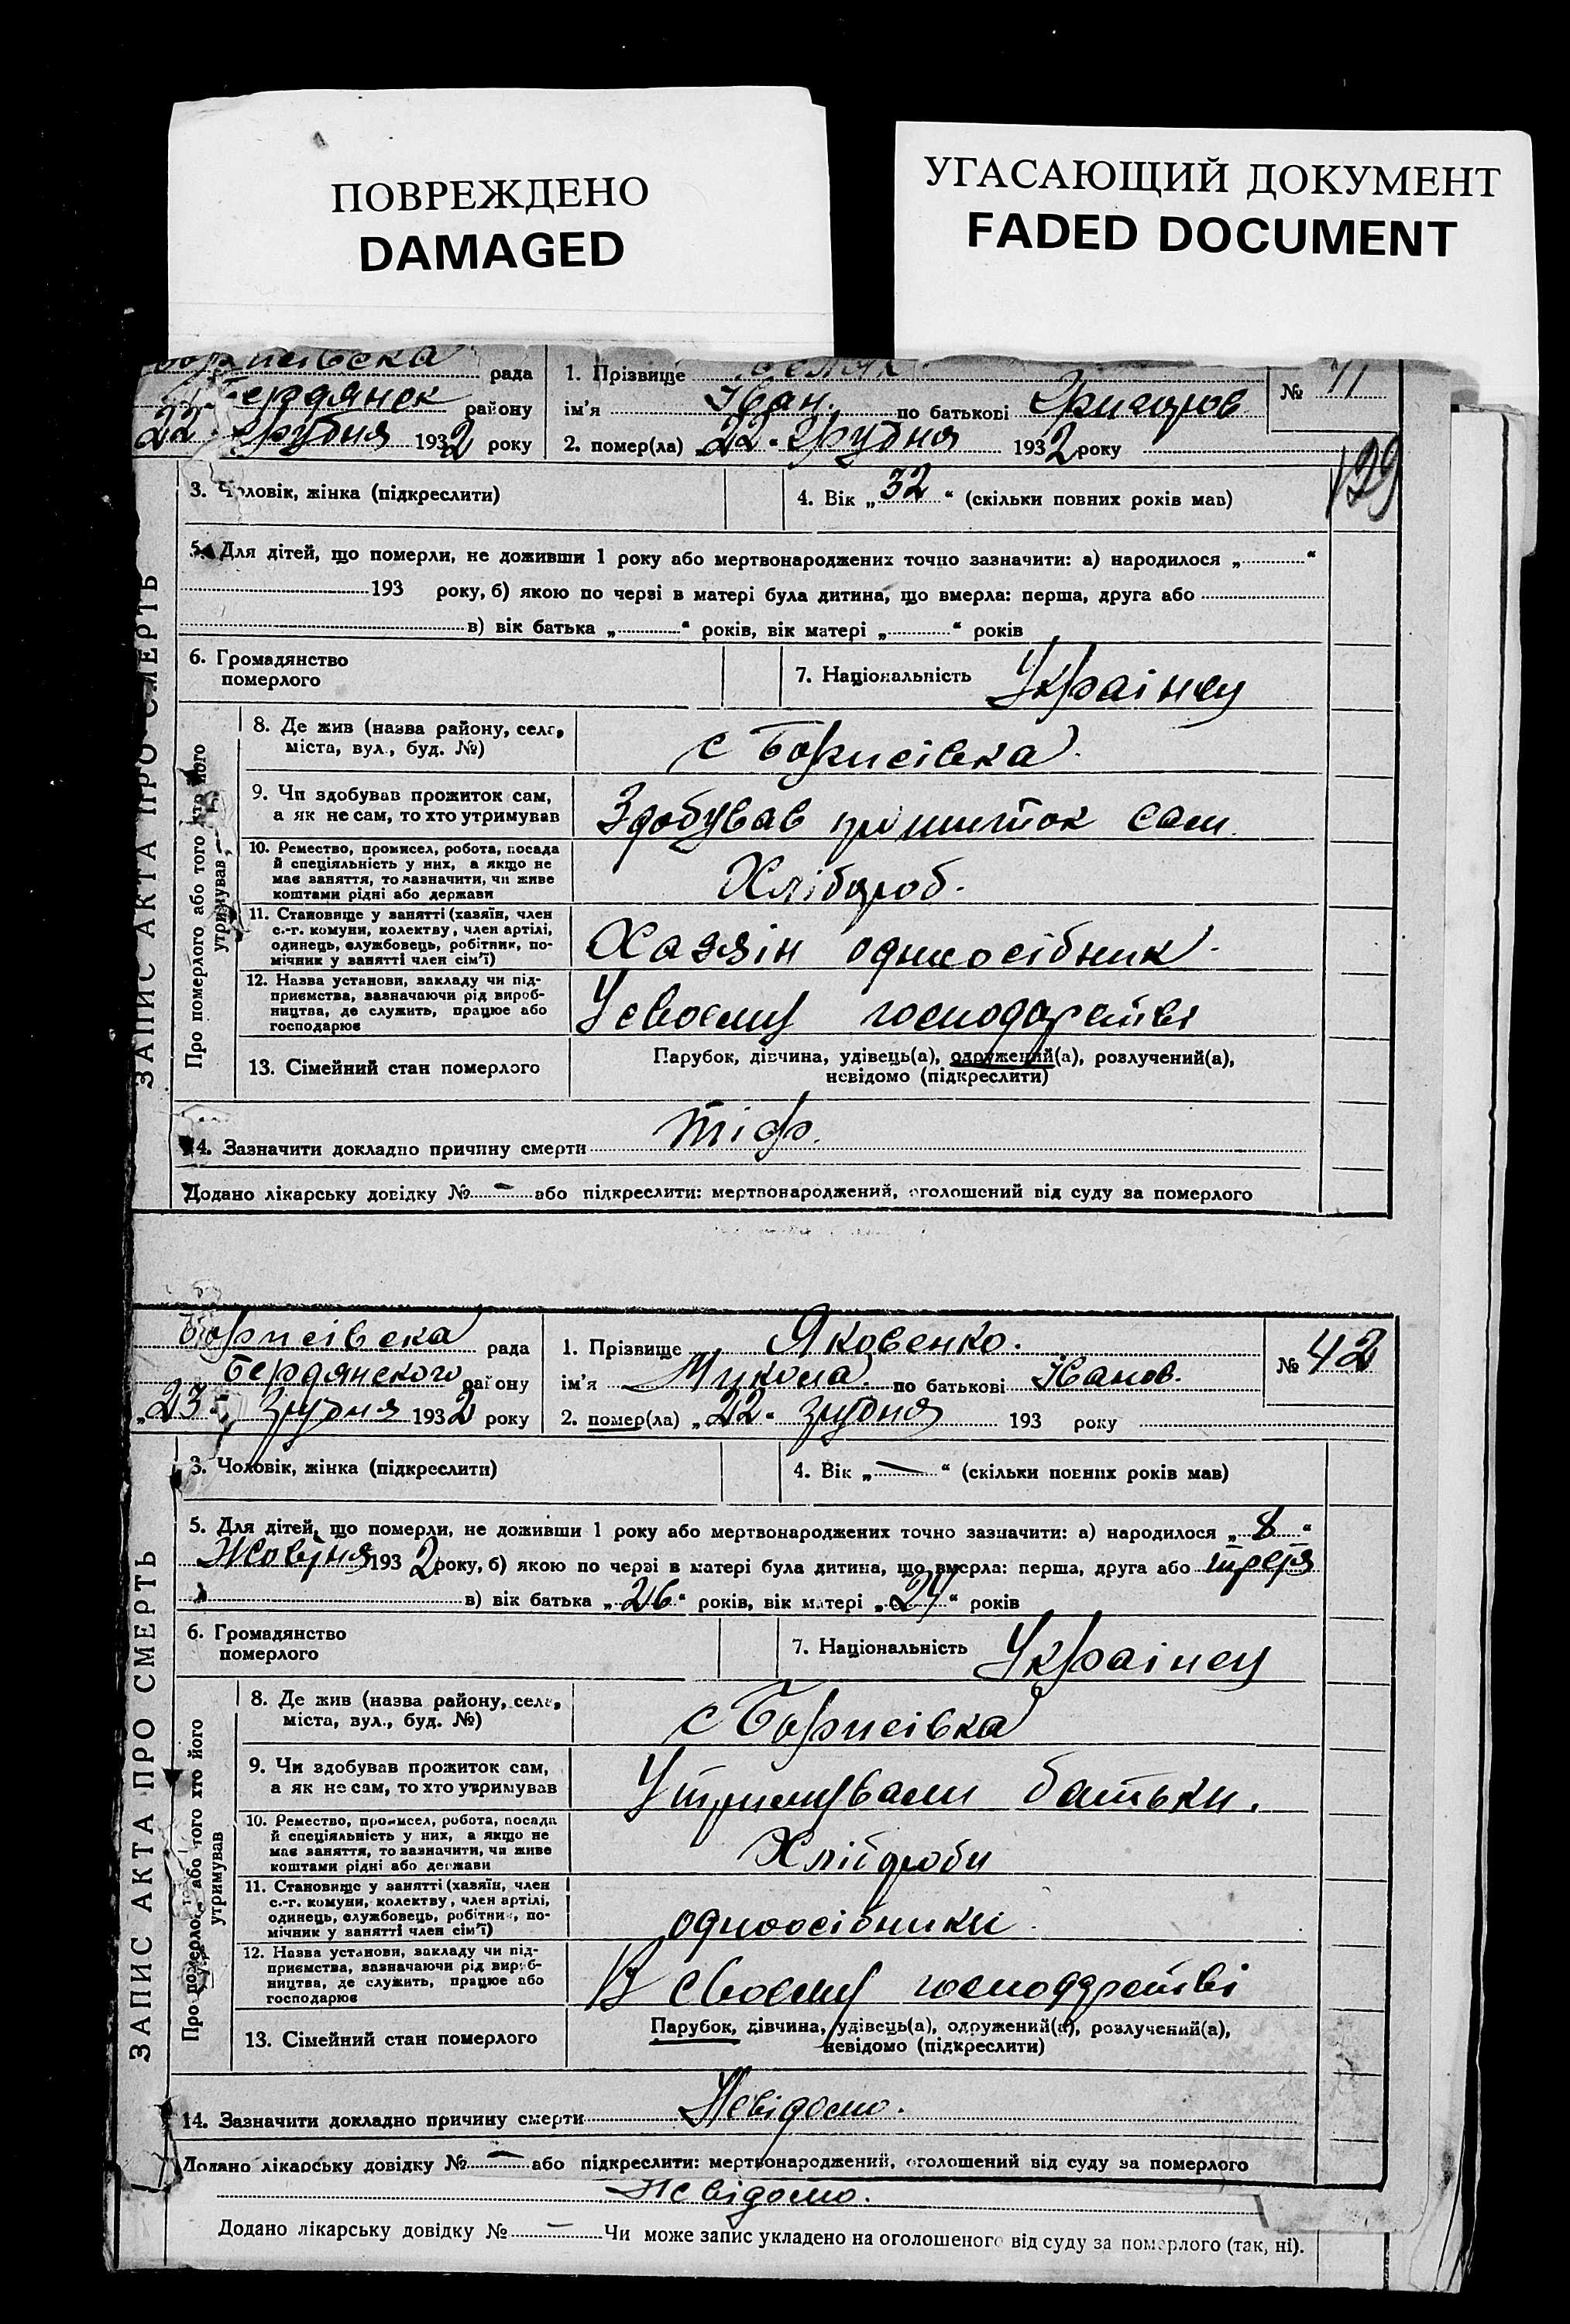 ПОВРЕЖДЕНО
DAMAGED
УГАСАЮЩИЙ ДОКУМЕНТ
FADED DOCUMENT
Борисівська рада
Бердянськ району
22 Грудня 1932 року
1. Прізвище
ім'я Іван. по батькові Григоров
2. помер(ла) „22" Грудня 1932 року
№
129
ЗАПИС АКТА ПРО СМЕРТЬ
3. Чоловік, жінка (підкреслити)
4. Вік „32" (скільки повних років мав)
5. Для дітей, що померли, не доживши 1 року або мертвонароджених точно зазначити: а) народилося „ "
193 року, б) якою по черзі в матері була дитина, що вмерла: перша, друга або
в) вік батька „ " років, вік матері „ " років
6. Громадянство
померлого
7. Національність Українец
Про померлого або того хто його
утримував
8. Де жив (назва району, села,
міста, вул., буд. №)
с Борисівка
9. Чи здобував прожиток сам,
а як не сам, то хто утримував
Здобував прошиток сам
10. Ремество, промисел, робота, посада
й спеціяльність у них, а якщо не
має заняття, то зазначити, чи живе
коштами рідні або держави
Хлібороб.
11. Становище у занятті (хазяїн, член
с.-г. комуни, колективу, член артілі,
одинець, службовець, робітник, по-
мічник у занятті член сім'ї)
Хазяін одноосібник
12. Назва установи, закладу чи під-
приємства, зазначаючи рід вироб-
ництва, де служить, працює або
господарює
У своєму господарстві
13. Сімейний стан померлого
Парубок, дівчина, удівець(а), одружений(а), розлучений(а),
невідомо (підкреслити)
14. Зазначити докладно причину смерти Тіф.
Додано лікарську довідку № — або підкреслити: мертвонароджений, оголошений від суду за померлого
Борисівська рада
Бердянського району
„23" грудня 1932 року
1. Прізвище Яковенко.
ім'я Микола по батькові Іванов.
2. помер(ла) „22" грудня 193 року
№ 42
ЗАПИС АКТА ПРО СМЕРТЬ
3. Чоловік, жінка (підкреслити)
4. Вік „—" (скільки повних років мав)
5. Для дітей, що померли, не доживши 1 року або мертвонароджених точно зазначити: а) народилося „8"
Жовтня 1932 року, б) якою по черзі в матері була дитина, що вмерла: перша, друга або третя
в) вік батька „26" років, вік матері „27" років
6. Громадянство
померлого
7. Національність Українец
Про померлого або того хто його
утримував
8. Де жив (назва району, села,
міста, вул., буд. №)
с Борисівка
9. Чи здобував прожиток сам,
а як не сам, то хто утримував
Утримували батьки.
10. Ремество, промисел, робота, посада
й спеціяльність у них, а якщо не
має заняття, то зазначити, чи живе
коштами рідні або держави
Хлібороби
11. Становище у занятті (хазяїн, член
с.-г. комуни, колективу, член артілі,
одинець, службовець, робітник, по-
мічник у занятті член сім'ї)
одноосібники
12. Назва установи, закладу чи під-
приємства, зазначаючи рід вироб-
ництва, де служить, працює або
господарює
В своєму господарстві
13. Сімейний стан померлого
Парубок, дівчина, удівець(а), одружений(а), розлучений(а),
невідомо (підкреслити)
14. Зазначити докладно причину смерти Невідомо.
Додано лікарську довідку № — або підкреслити: мертвонароджений, оголошений від суду за померлого
Невідомо.
Додано лікарську довідку № — Чи може запис укладено на оголошеного від суду за померлого (так, ні).